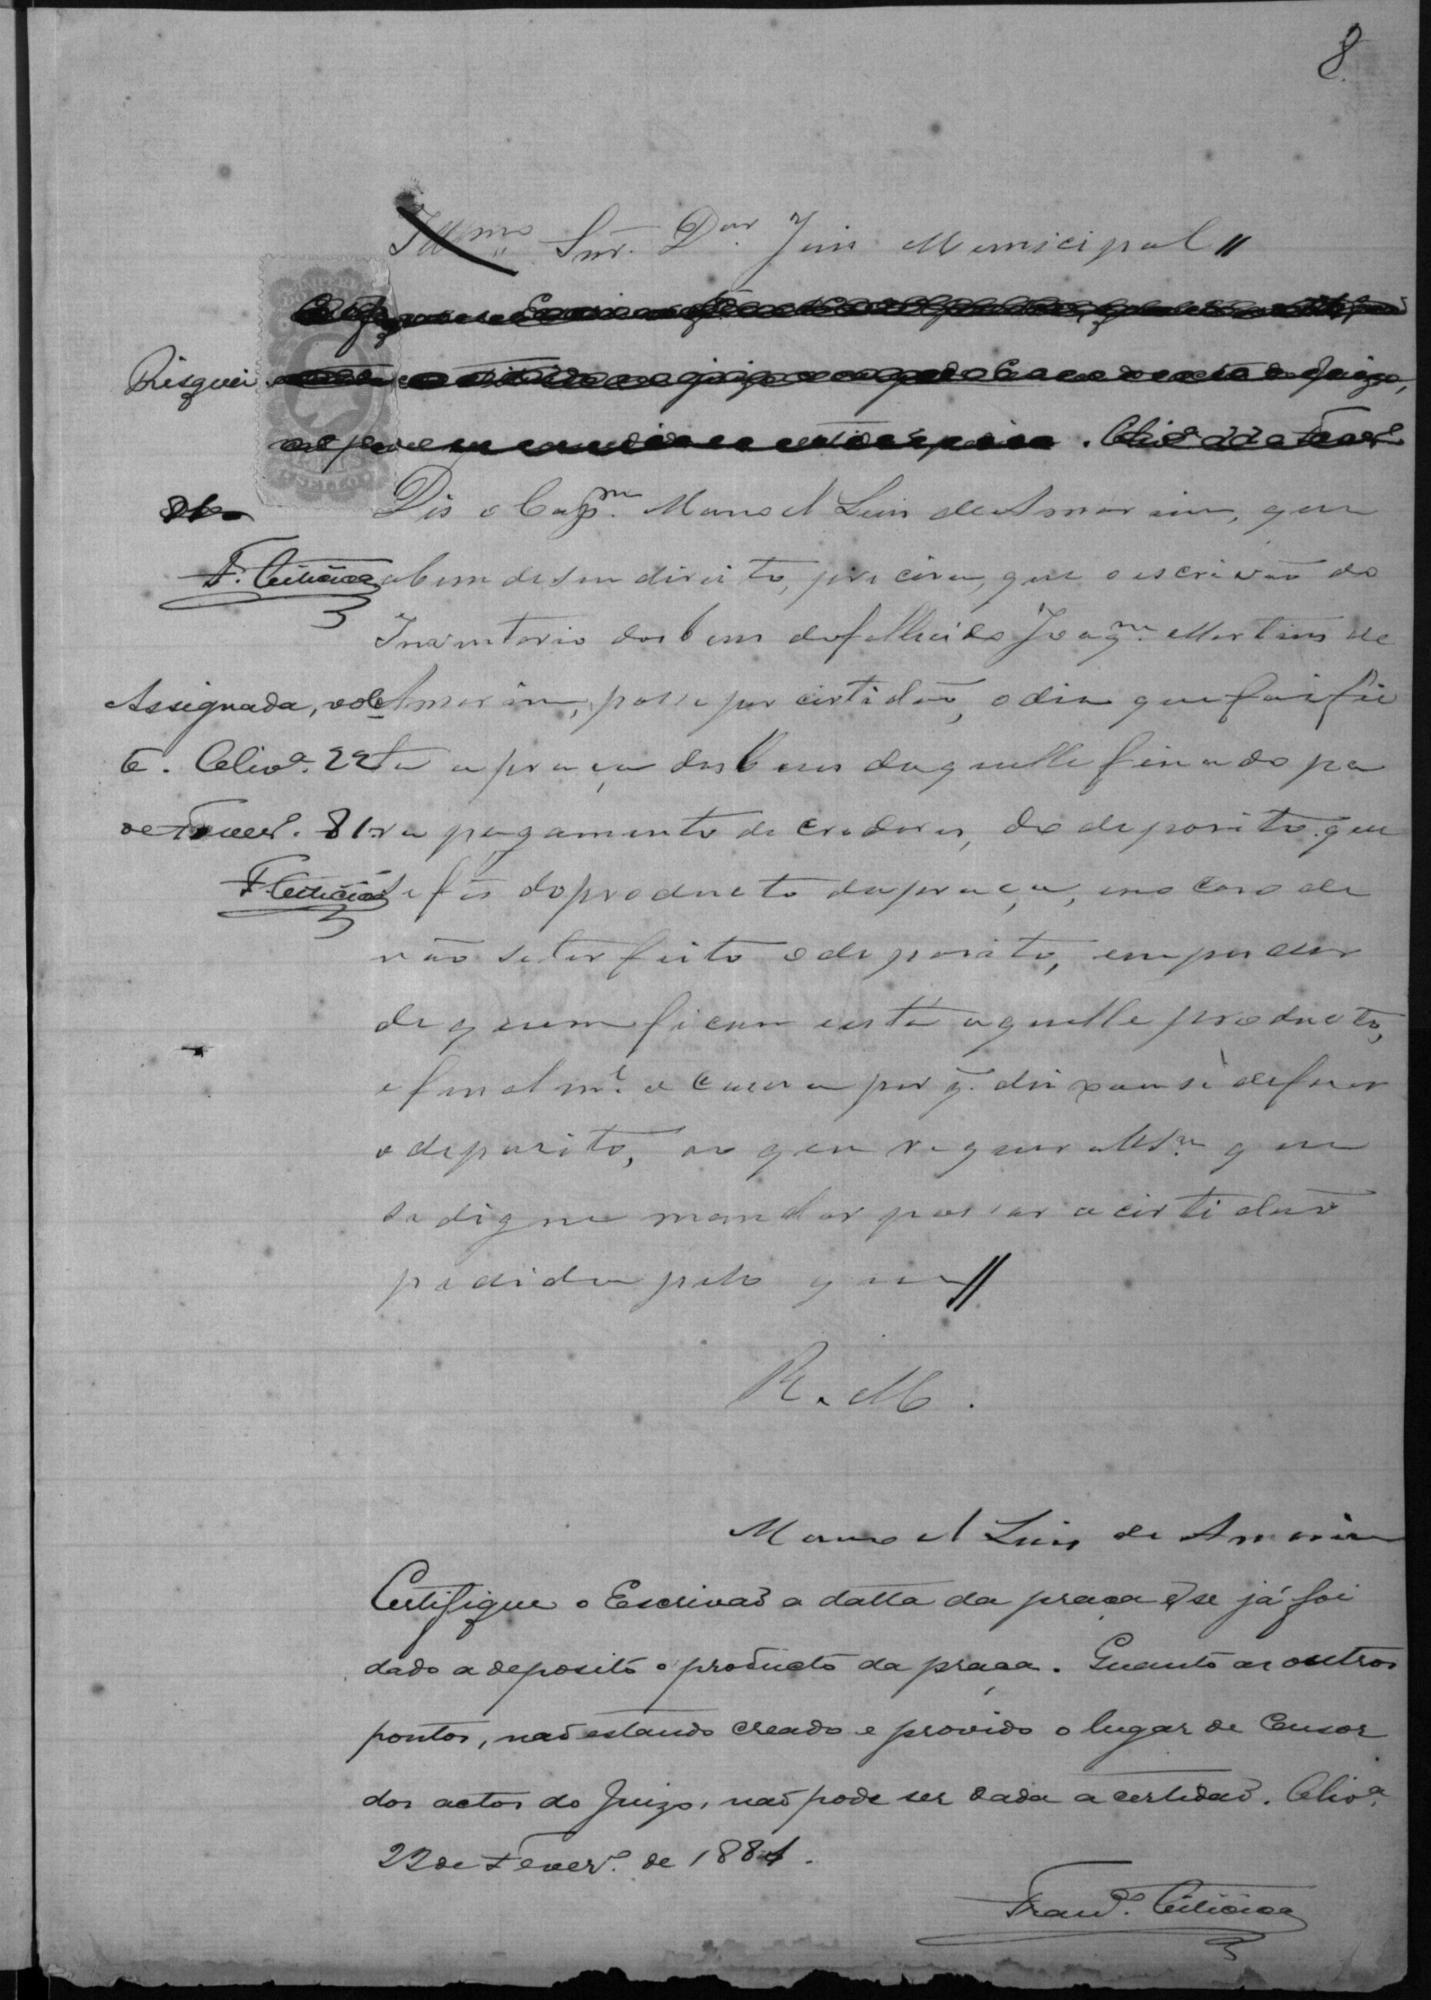 8
Illmo Snr. Dor. Juis Municipal //
Risquei
81
Dis o Capm. Manoel Luis de Amorim, que
F.
abem de seu direito, precisa, que o escrivão do
Inventario dos bens do fallecido Joaqm. Martins de
Assignada, volte
Amorim, passe por certidão, o dia que foi fei
22
ta a praça dos bens daquelle finado pa
de Fever. 81.
ra pagamento de credores, do deposito que
F.
se fes do producto da praça, e no caso de
não se ter feito o deposito, em poder
de quem ficou esta aquelle producto,
e finalmt. a causa por q. deixou se de faser
o deposito, ao que requer a VSa. que
se digne mandar passar a certidão
pedida pelo que //
R. M.
Manoel Luis de Amorim
Certifique o Escrivão a datta da praça e se já foi
dado a deposito o producto da praça. Quanto aos outros
pontos, não estando creado e provido o lugar de Censor
dos actos do Juizo, não pode ser dada a certidão. Olivª.
22 de Feverº. de 1881.
Francº.